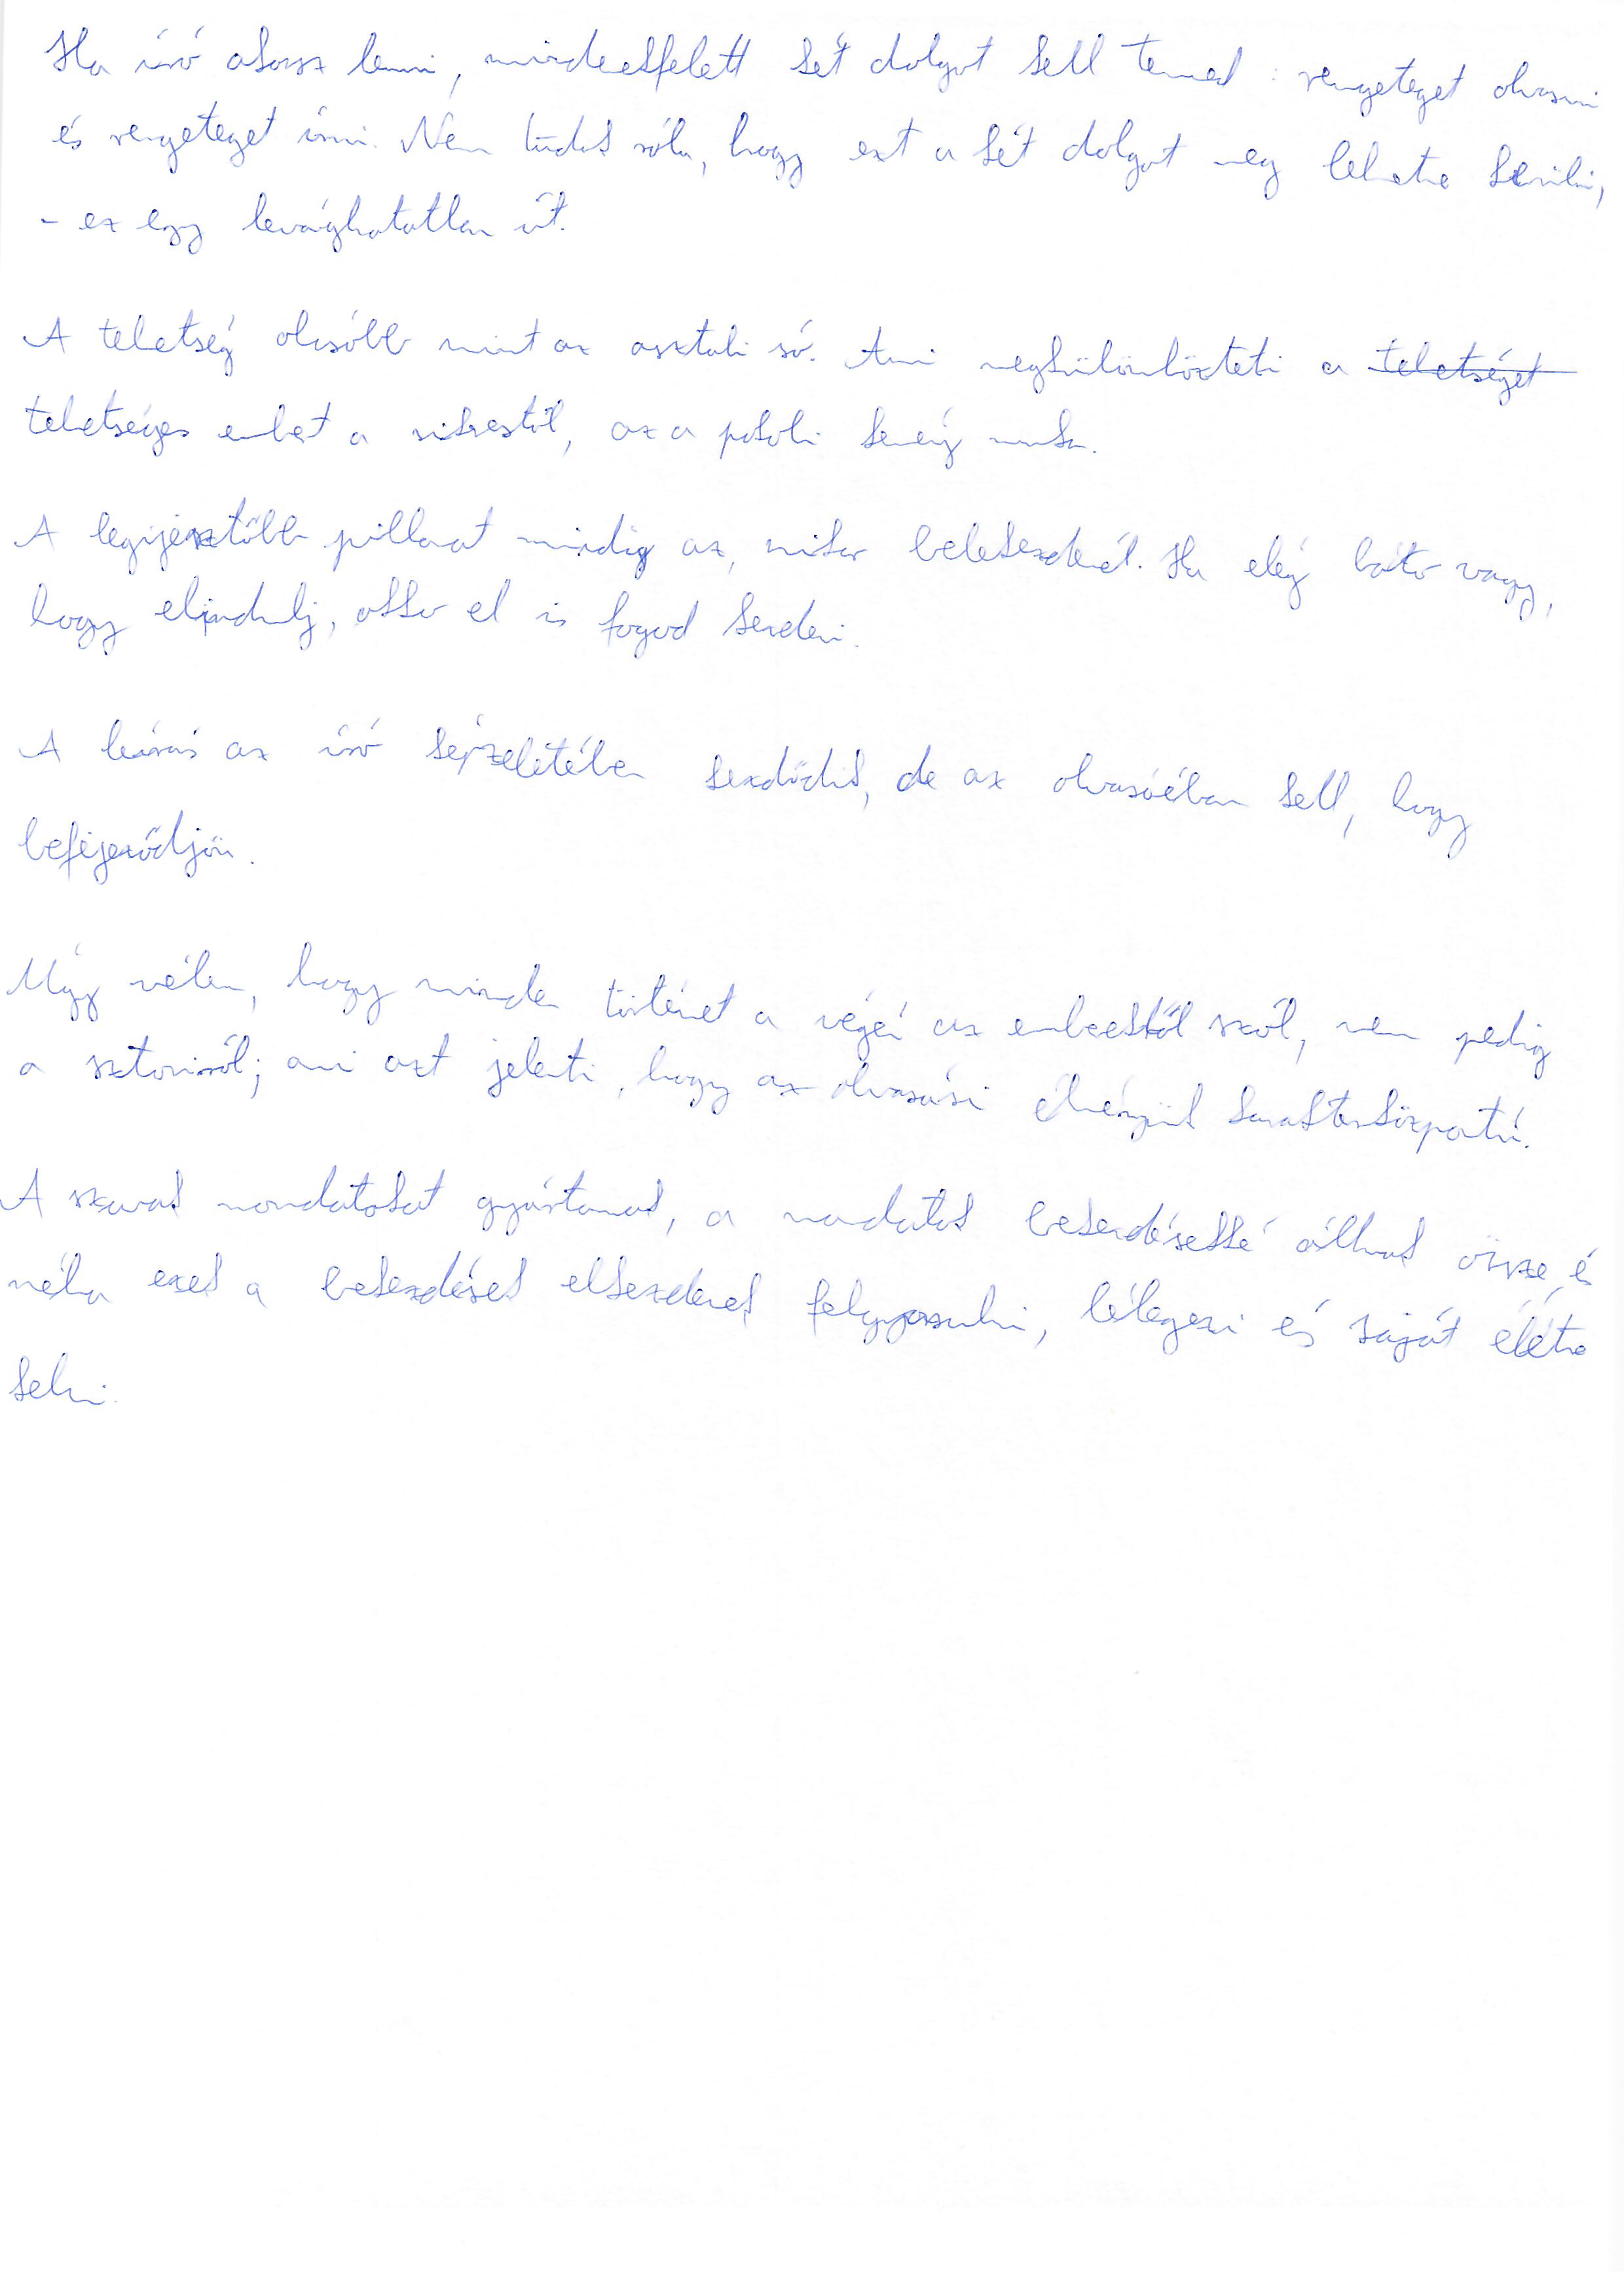 Ha író akarsz lenni, mindenekfelett két dolgot kell tenned: rengeteget olvasni
és rengeteget írni. Nem tudok róla, hogy ezt a két dolgot meg lehetne kerülni,
- ez egy levághatatlan út.
A tehetség olcsóbb mint az asztali só. Ami megkülönbözteti a tehetséget
tehetséges embert a sikerestől, az a pokoli kemény munka.
A legijesztőbb pillanat mindig az, mikor belekezdenél. Ha elég bátor vagy,
hogy elindulj, akkor el is fogod kezdeni.
A leírás az író képzeletében kezdődik, de az olvasóéban kell, hogy
befejeződjön.
Úgy vélem, hogy minden történet a végén az emberekről szól, nem pedig
a sztoriról; ami azt jelenti, hogy az olvasási élményünk karakterközpontú.
A szavak mondatokat gyártanak, a mondatok bekezdésekké állnak össze, és
néha ezek a bekezdések elkezdenek felgyorsulni, lélegezni és saját életre
kelni.